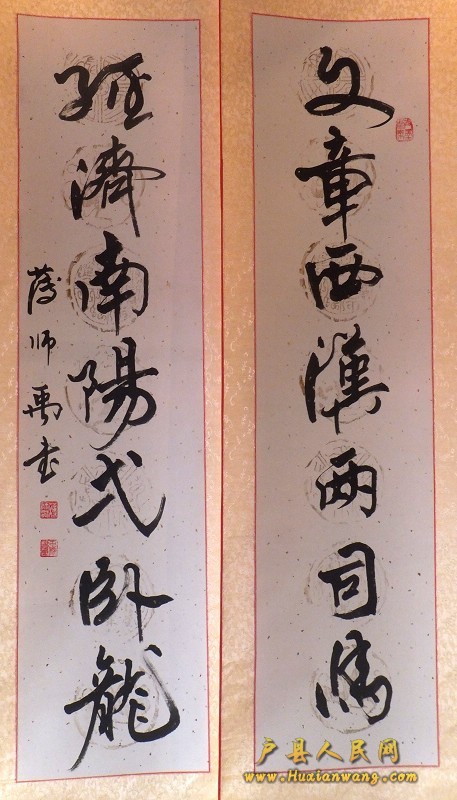 文章西漢两司馬
經濟南陽弌卧龍
薛师禹書
户县人民网
www.Huxianwang.com